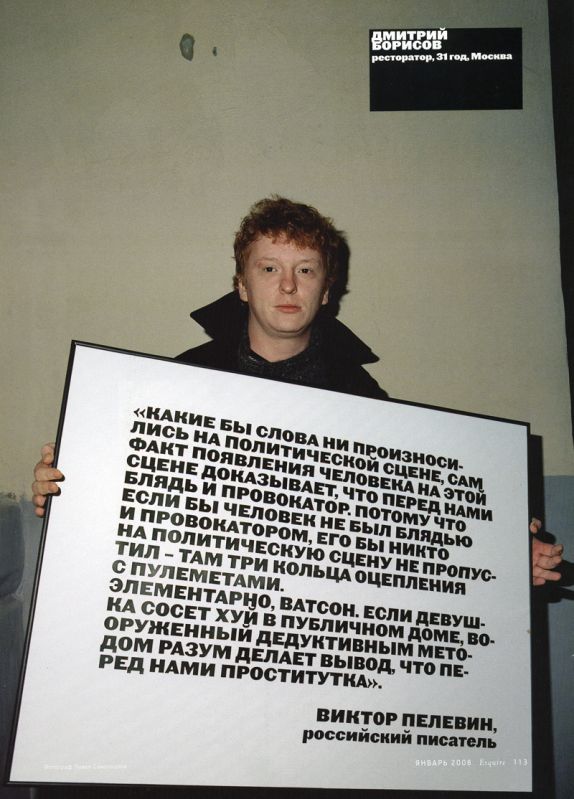 ДМИТРИЙ
БОРИСОВ
ресторатор, 31 год, Москва
«КАКИЕ БЫ СЛОВА НИ ПРОИЗНОСИ-
ЛИСЬ НА ПОЛИТИЧЕСКОЙ СЦЕНЕ, САМ
ФАКТ ПОЯВЛЕНИЯ ЧЕЛОВЕКА НА ЭТОЙ
СЦЕНЕ ДОКАЗЫВАЕТ, ЧТО ПЕРЕД НАМИ
БЛЯДЬ И ПРОВОКАТОР. ПОТОМУ ЧТО
ЕСЛИ БЫ ЧЕЛОВЕК НЕ БЫЛ БЛЯДЬЮ
И ПРОВОКАТОРОМ, ЕГО БЫ НИКТО
НА ПОЛИТИЧЕСКУЮ СЦЕНУ НЕ ПРОПУС-
ТИЛ – ТАМ ТРИ КОЛЬЦА ОЦЕПЛЕНИЯ
С ПУЛЕМЕТАМИ.
ЭЛЕМЕНТАРНО, ВАТСОН. ЕСЛИ ДЕВУШ-
КА СОСЕТ ХУЙ В ПУБЛИЧНОМ ДОМЕ, ВО-
ОРУЖЕННЫЙ ДЕДУКТИВНЫМ МЕТО-
ДОМ РАЗУМ ДЕЛАЕТ ВЫВОД, ЧТО ПЕ-
РЕД НАМИ ПРОСТИТУТКА».
ВИКТОР ПЕЛЕВИН,
российский писатель
Фотограф Павел
ЯНВАРЬ 2008 Esquire 113